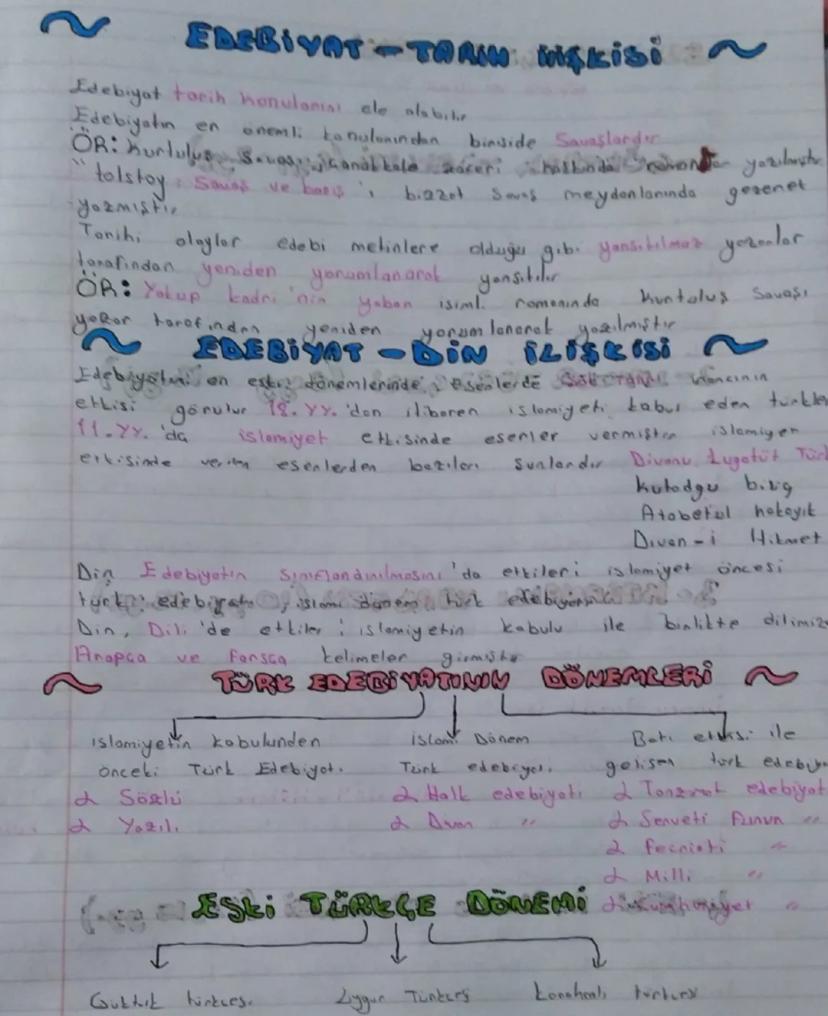 EDEBİYAT-TARİH İLİŞKİSİ
Edebiyat tarih konularını ele alabilir
Edebiyatın en önemli konularından biriside Savaşlardır
ÖR: Kurtuluş Savaşı, Çanakkale zaferi hakkında yazılmıştır
"tolstoy Savaş ve barış'ı bizzat savaş meydanlarında gezerek
yazmıştır
Tarihi olaylar edebi metinlere olduğu gibi yansıtılmaz yazarlar
tarafından yeniden yorumlanarak yansıtılır
ÖR: Yakup kadri'nin yaban isimli romanında kurtuluş Savaşı
yazar tarafından yeniden yorumlanarak yazılmıştır
EDEBİYAT-DİN İLİŞKİSİ
Edebiyatın en eski dönemlerinde, eserlerde inancının
etkisi görülür 12. yy.'dan itibaren islamiyeti kabul eden türkler
11. yy.'da islamiyet etkisinde eserler vermiştir islamiyet
etkisinde verilen eserlerden bazıları şunlardır Divanu Lugatüt Türk
Kutadgu bilig
Atabetül hakayık
Divan-i Hikmet
Din Edebiyatın Sınıflandırılmasını'da etkileri islamiyet öncesi
türk edebiyatı, islami dönem türk edebiyatı
Din, Dili'de etkiler: islamiyetin kabulu ile birlikte dilimize
Arapça ve farsça kelimeler girmiştir
TÜRK EDEBİYATININ DÖNEMLERİ
islamiyetin kabulunden islami Dönem Batı etkisi ile
önceki Türk Edebiyatı Türk edebiyatı gelişen türk edebiya
Sözlü Halk edebiyatı Tanzimat edebiyat
Yazılı Divan " Serveti Fünun "
Fecriati "
Milli "
ESKİ TÜRKÇE DÖNEMİ cumhuriyet "
Göktürk türkçesi Uygur Türkçesi karahanlı türkçesi